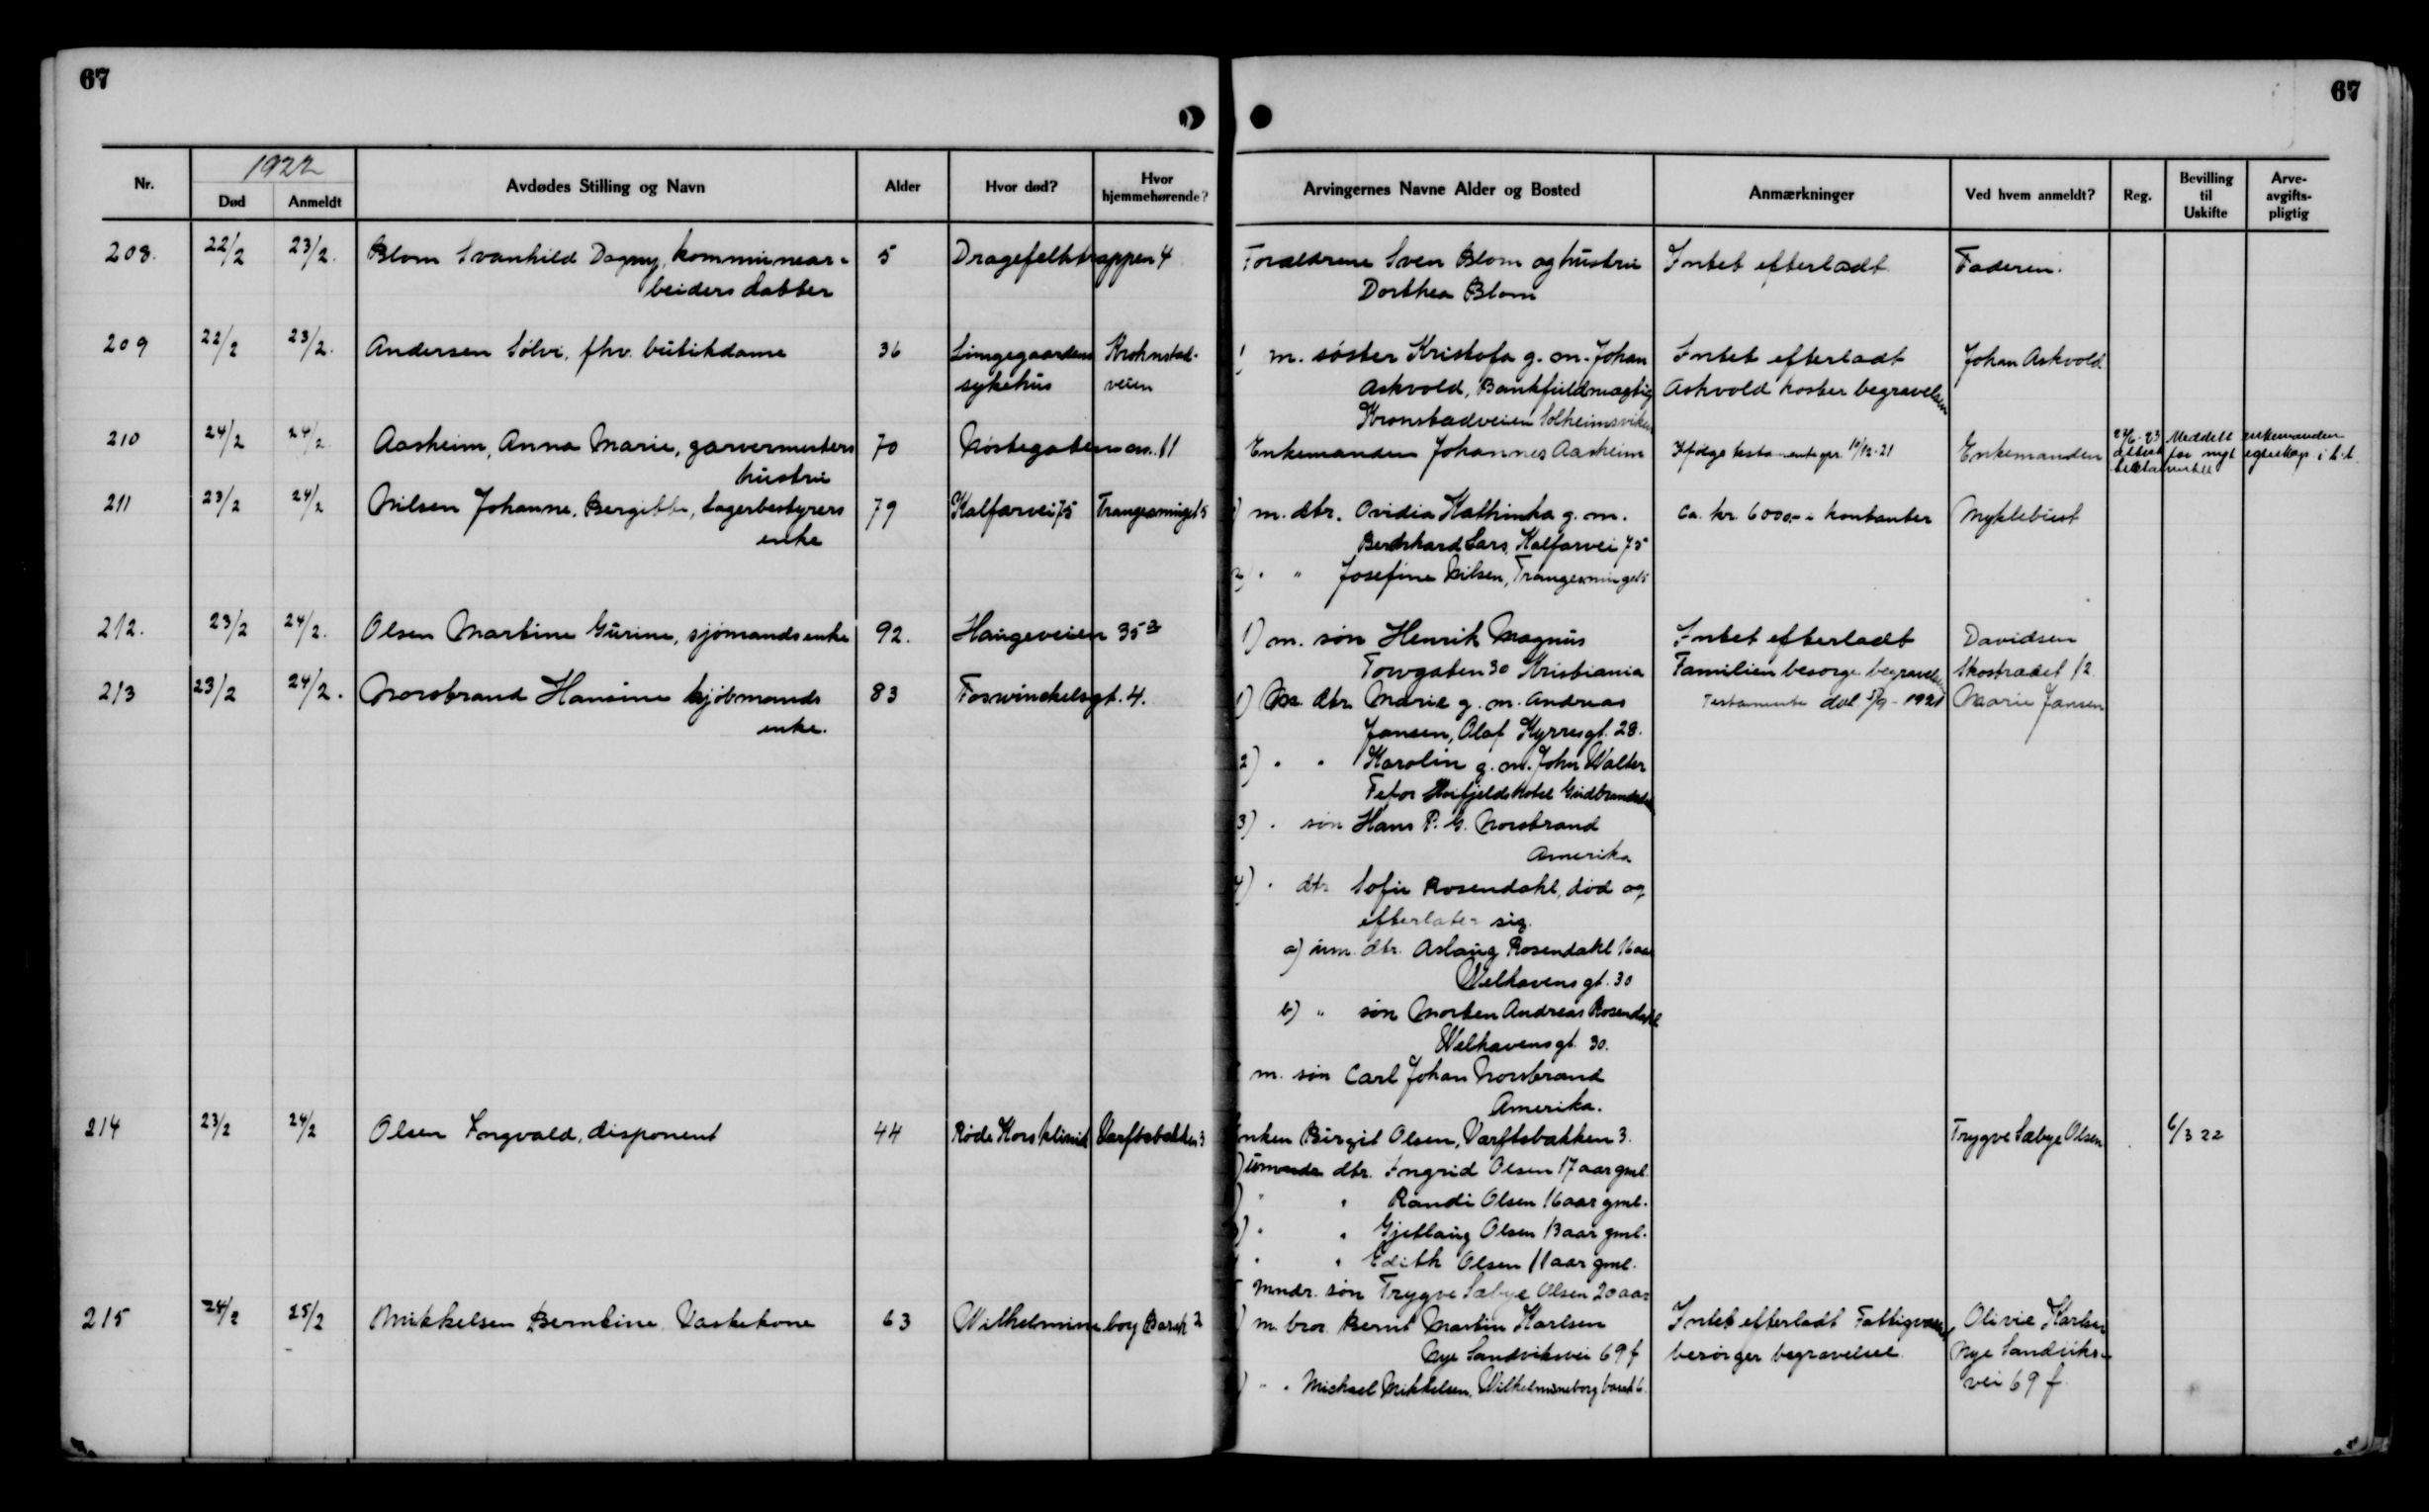 67
67
1922
Nr.
Død
Anmeldt
Avdødes Stilling og Navn
Alder
Hvor død?
Hvor hjemmehørende?
Arvingernes Navne Alder og Bosted
Anmærkninger
Ved hvem anmeldt?
Reg.
Bevilling til Uskifte
Arve-avgifts-pligtig
208. 22/2 23/2. Blom Svanhild Dagny, kommunear- 5 Dragefeltstrappen 4 Forældrene Sven Blom og hustru Intet efterladt Faderen.
beiders datter Dorthea Blom
209 22/2 23/2. Andersen Sölvi, fhv. butikdame 36 Lungegaardens Krohnstad- 1 m. søster Kristofa g. m. Johan Intet efterladt Johan Askvold.
sykehus veien Askvold, Bankfuldmægtig Askvold koster begravelsen
Kronstadveien Solheimsviken
210 24/2 24/2. Aasheim, Anna Marie, garvermesters 70 Nøstegaten 11 Enkemanden Johannes Aasheim Ifølge testamente 10/12-21 Enkemanden Meddelt enkemanden
hustru attest for nyt egteskap
211 23/2 24/2 Nilsen Johanne, Bergitte, Lagerbestyrers 79 Kalfarvei 75 m. dtr. Ovidia Kathinka g. m. ca. kr. 6000.- kontanter Myklebust
enke Bernhard Lars, Kalfarvei 75
2) " " Josefine Nilsen,
212. 23/2 24/2. Olsen Martine Gurine, sjømands enke 92. Haugeveien 35 1) m. søn Henrik Magnus Intet efterladt Davidsen
Torvgaten 30 Kristiania Familien besørge begravelsen Skostrædet 12
213 23/2 24/2. Norsbrand Hansine kjøbmands 83 Foswinckelsgt. 4. 1) m. dtr. Marie g. m. Andreas Testamente dat. 5/9-1921 Marie Jansen
enke. Jansen, Olaf Kyrresgt. 28.
2) " " Karolin g. m. John Walter
Fefor Høifjeldshotel Gudbrandsdalen
3) " søn Hans P. G. Norsbrand
Amerika
4) " dtr Sofie Rosendahl, død og
efterlater sig.
a) um. dtr. Aslaug Rosendahl 16 aar
Welhavensgt. 30
b) " søn Morten Andreas Rosendahl
Welhavensgt. 30.
m. søn Carl Johan Norsbrand
Amerika.
214 23/2 24/2 Olsen Ingvald, disponent 44 Røde Kors klinik Værftsbakken 3 Enken Birgit Olsen, Værftsbakken 3. Trygve Sæbye Olsen 6/3 22
dtr. Ingrid Olsen 17 aar gml
" Randi Olsen 16 aar gml.
" Gjetlaug Olsen 13 aar gml.
" Edith Olsen 11 aar gml.
mndr. søn Trygve Sæbye Olsen 20 aar
215 24/2 25/2 Mikkelsen Berntine Vaskekone 63 Wilhelmineborg Barak 2 m. bror Bernt Martin Karlsen Intet efterladt Fattigvæsenet Olivie Karlsen
Nye Sandviksvei 69 f besørger begravelse. Nye Sandviks-
" " Michael Mikkelsen, Wilhelmineborg barak 6 vei 69 f.